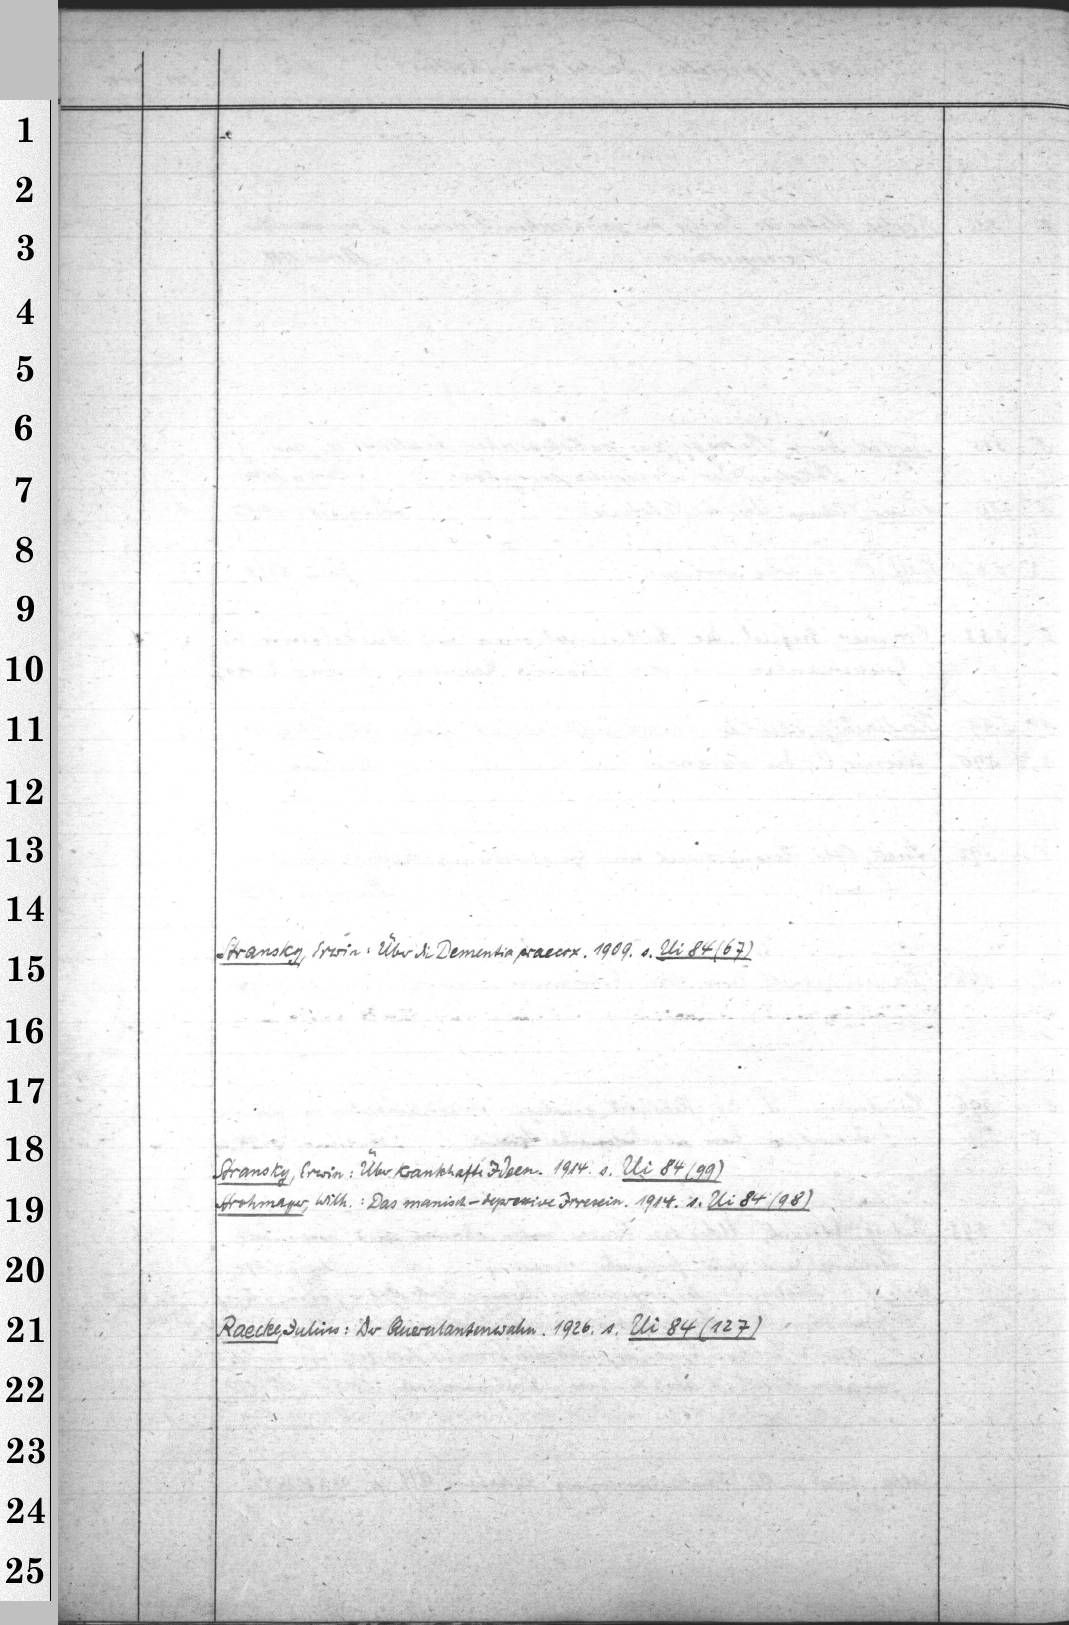 1
2
3
4
5
6
7
8
9
10
11
12
13
14
Stransky, Erwin: Über die Dementia praecox. 1909. s. Ui 84 (67)
15
16
17
18
Stransky, Erwin: Über krankhafte Ideen. 1914. s. Ui 84 (99)
19 Strohmayer, Wilh.: Das manisch-depressive Irresein. 1914. s. Ui 84 (98)
20
21 Raecke, Julius: Der Querulantenwahn. 1926. s. Ui 84 (127)
22
23
24
25